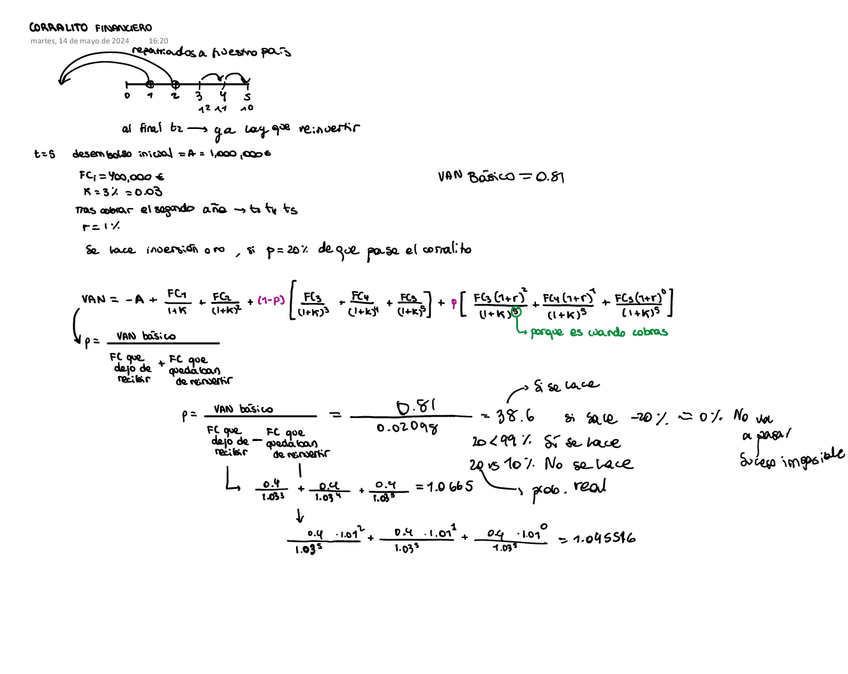 CORRALITO FINANCIERO
martes, 14 de mayo de 2024 16:20
repatriados a nuestro país
0 1 2 3 4 5
+2 +1 +0
al final t2 → ya hay que reinvertir
t=5 desembolso inicial = A = 1,000,000€
FC1 = 400,000 €
K = 3% = 0.03
VAN Básico = 0.81
Tras cobrar el segundo año → t3 t4 t5
r = 1%
Se hace inversión o no, si p=20% de que pase el corralito
VAN = -A + FC1/(1+K) + FC2/(1+K)^2 + (1-p) [FC3/(1+K)^3 + FC4/(1+K)^4 + FC5/(1+K)^5] + p [FC3(1+r)^2/(1+K)^5 + FC4(1+r)^1/(1+K)^5 + FC5(1+r)^0/(1+K)^5]
porque es cuando cobras
p = VAN básico / FC que dejo de recibir + FC que quedaban de reinvertir
Si se hace
p = VAN básico / FC que dejo de recibir - FC que quedaban de reinvertir = 0.81 / 0.02098 = 38.6 si sale -20% = 0% No va a pasar/
Suceso imposible
20 < 99% Sí se hace
20 vs 10% No se hace
prob. real
0.4/1.03^3 + 0.4/1.03^4 + 0.4/1.03^5 = 1.0665
0.4 · 1.01^2/1.03^5 + 0.4 · 1.01^1/1.03^5 + 0.4 · 1.01^0/1.03^5 = 1.045516